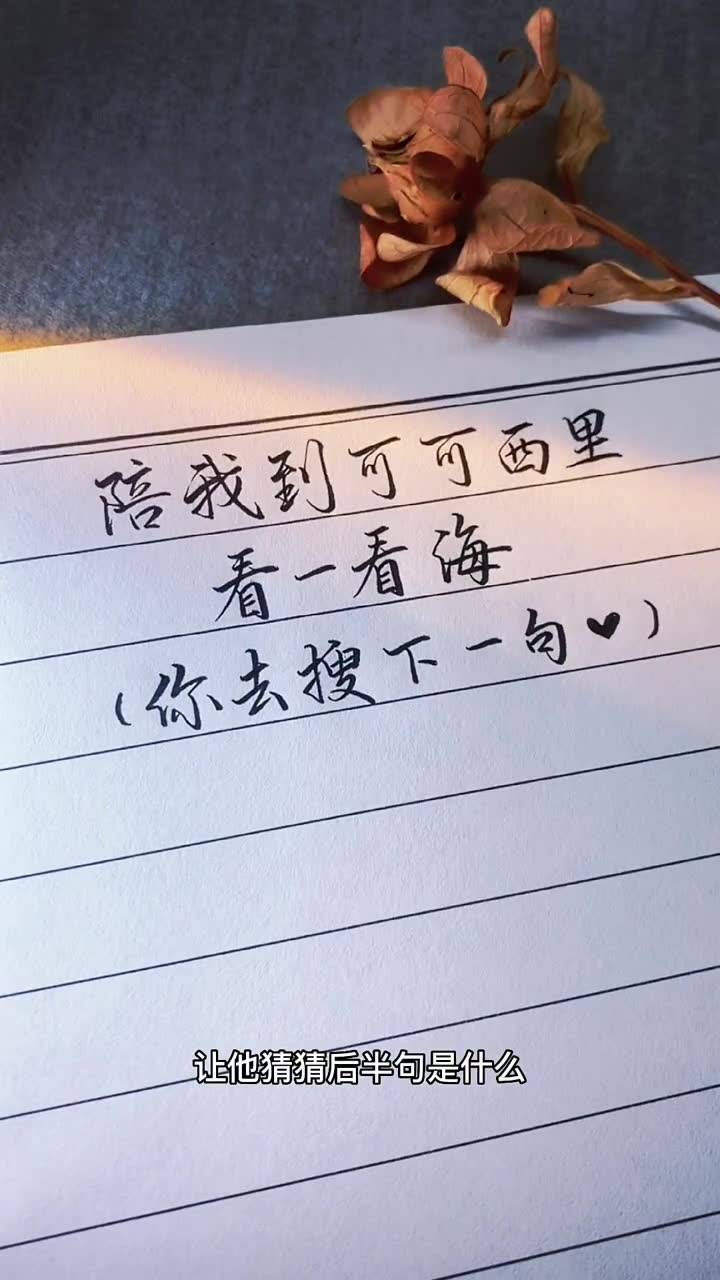 陪我到可可西里
看一看海
(你去搜下一句♥)
让他猜猜后半句是什么